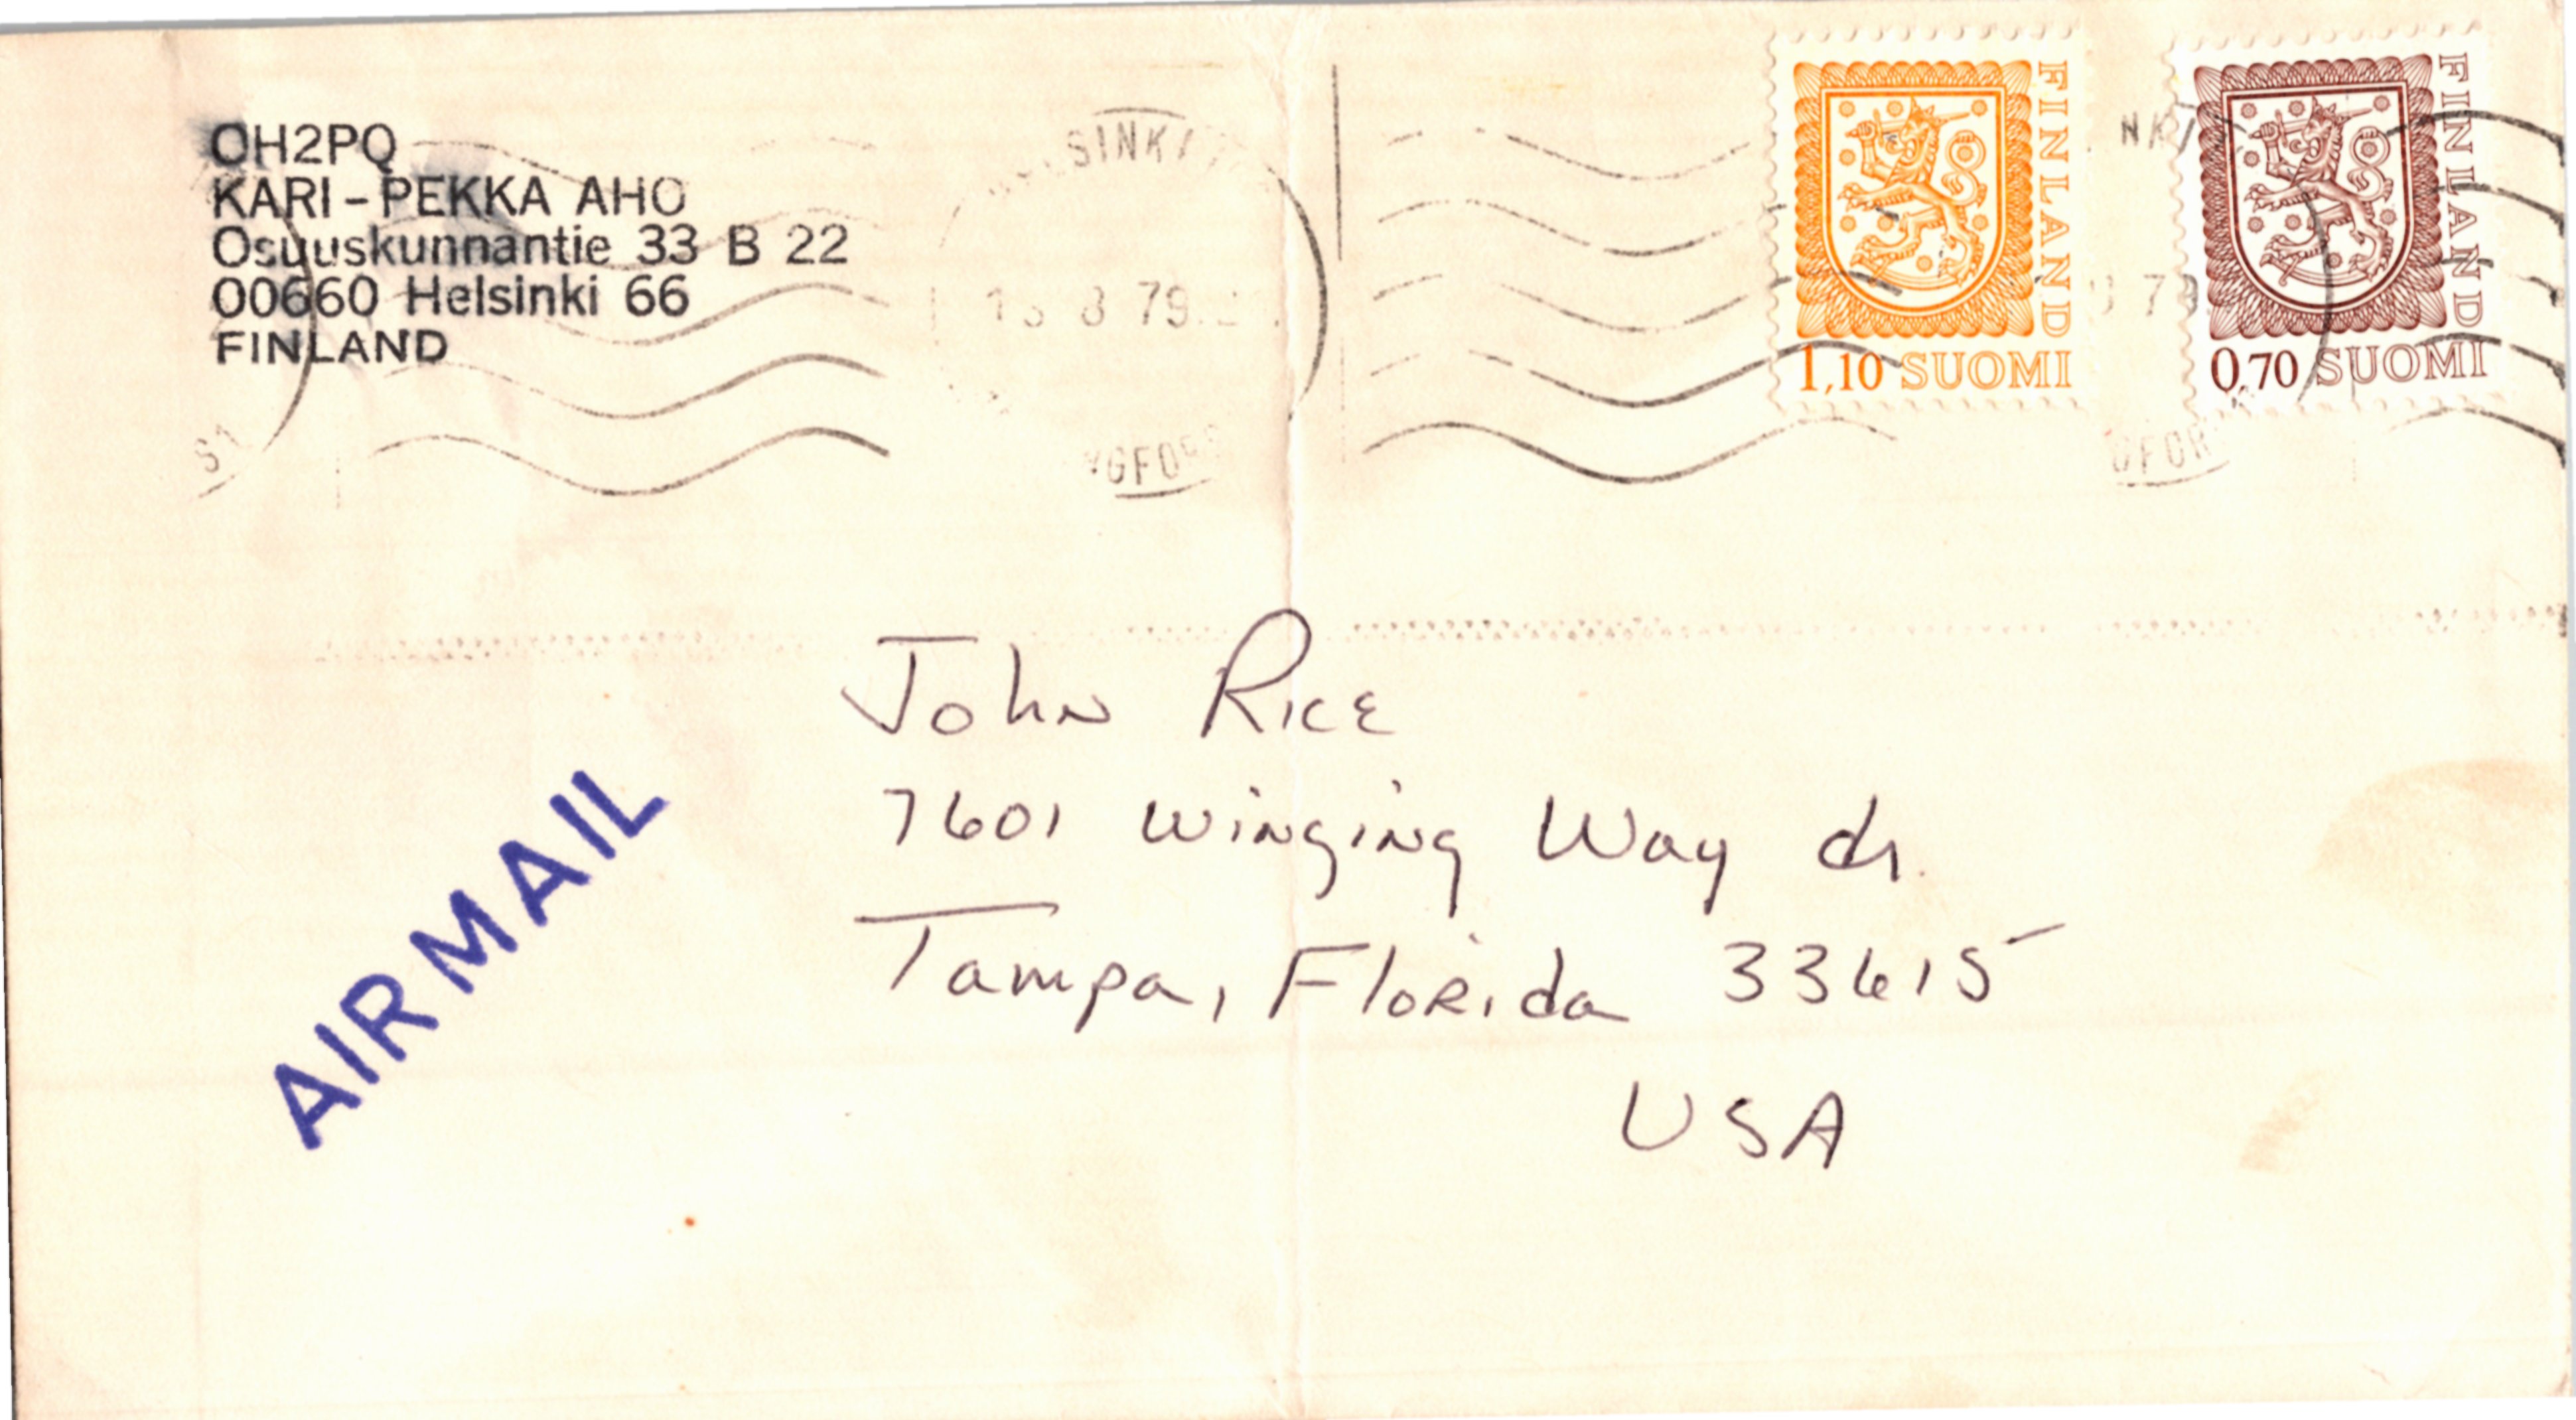 OH2PQ
KARI-PEKKA AHO
Osuuskunnantie 33 B 22
00660 Helsinki 66
FINLAND
FINLAND
1,10 SUOMI
FINLAND
0,70 SUOMI
John Rice
7601 Winging Way dr.
Tampa, Florida 33615
USA
AIRMAIL